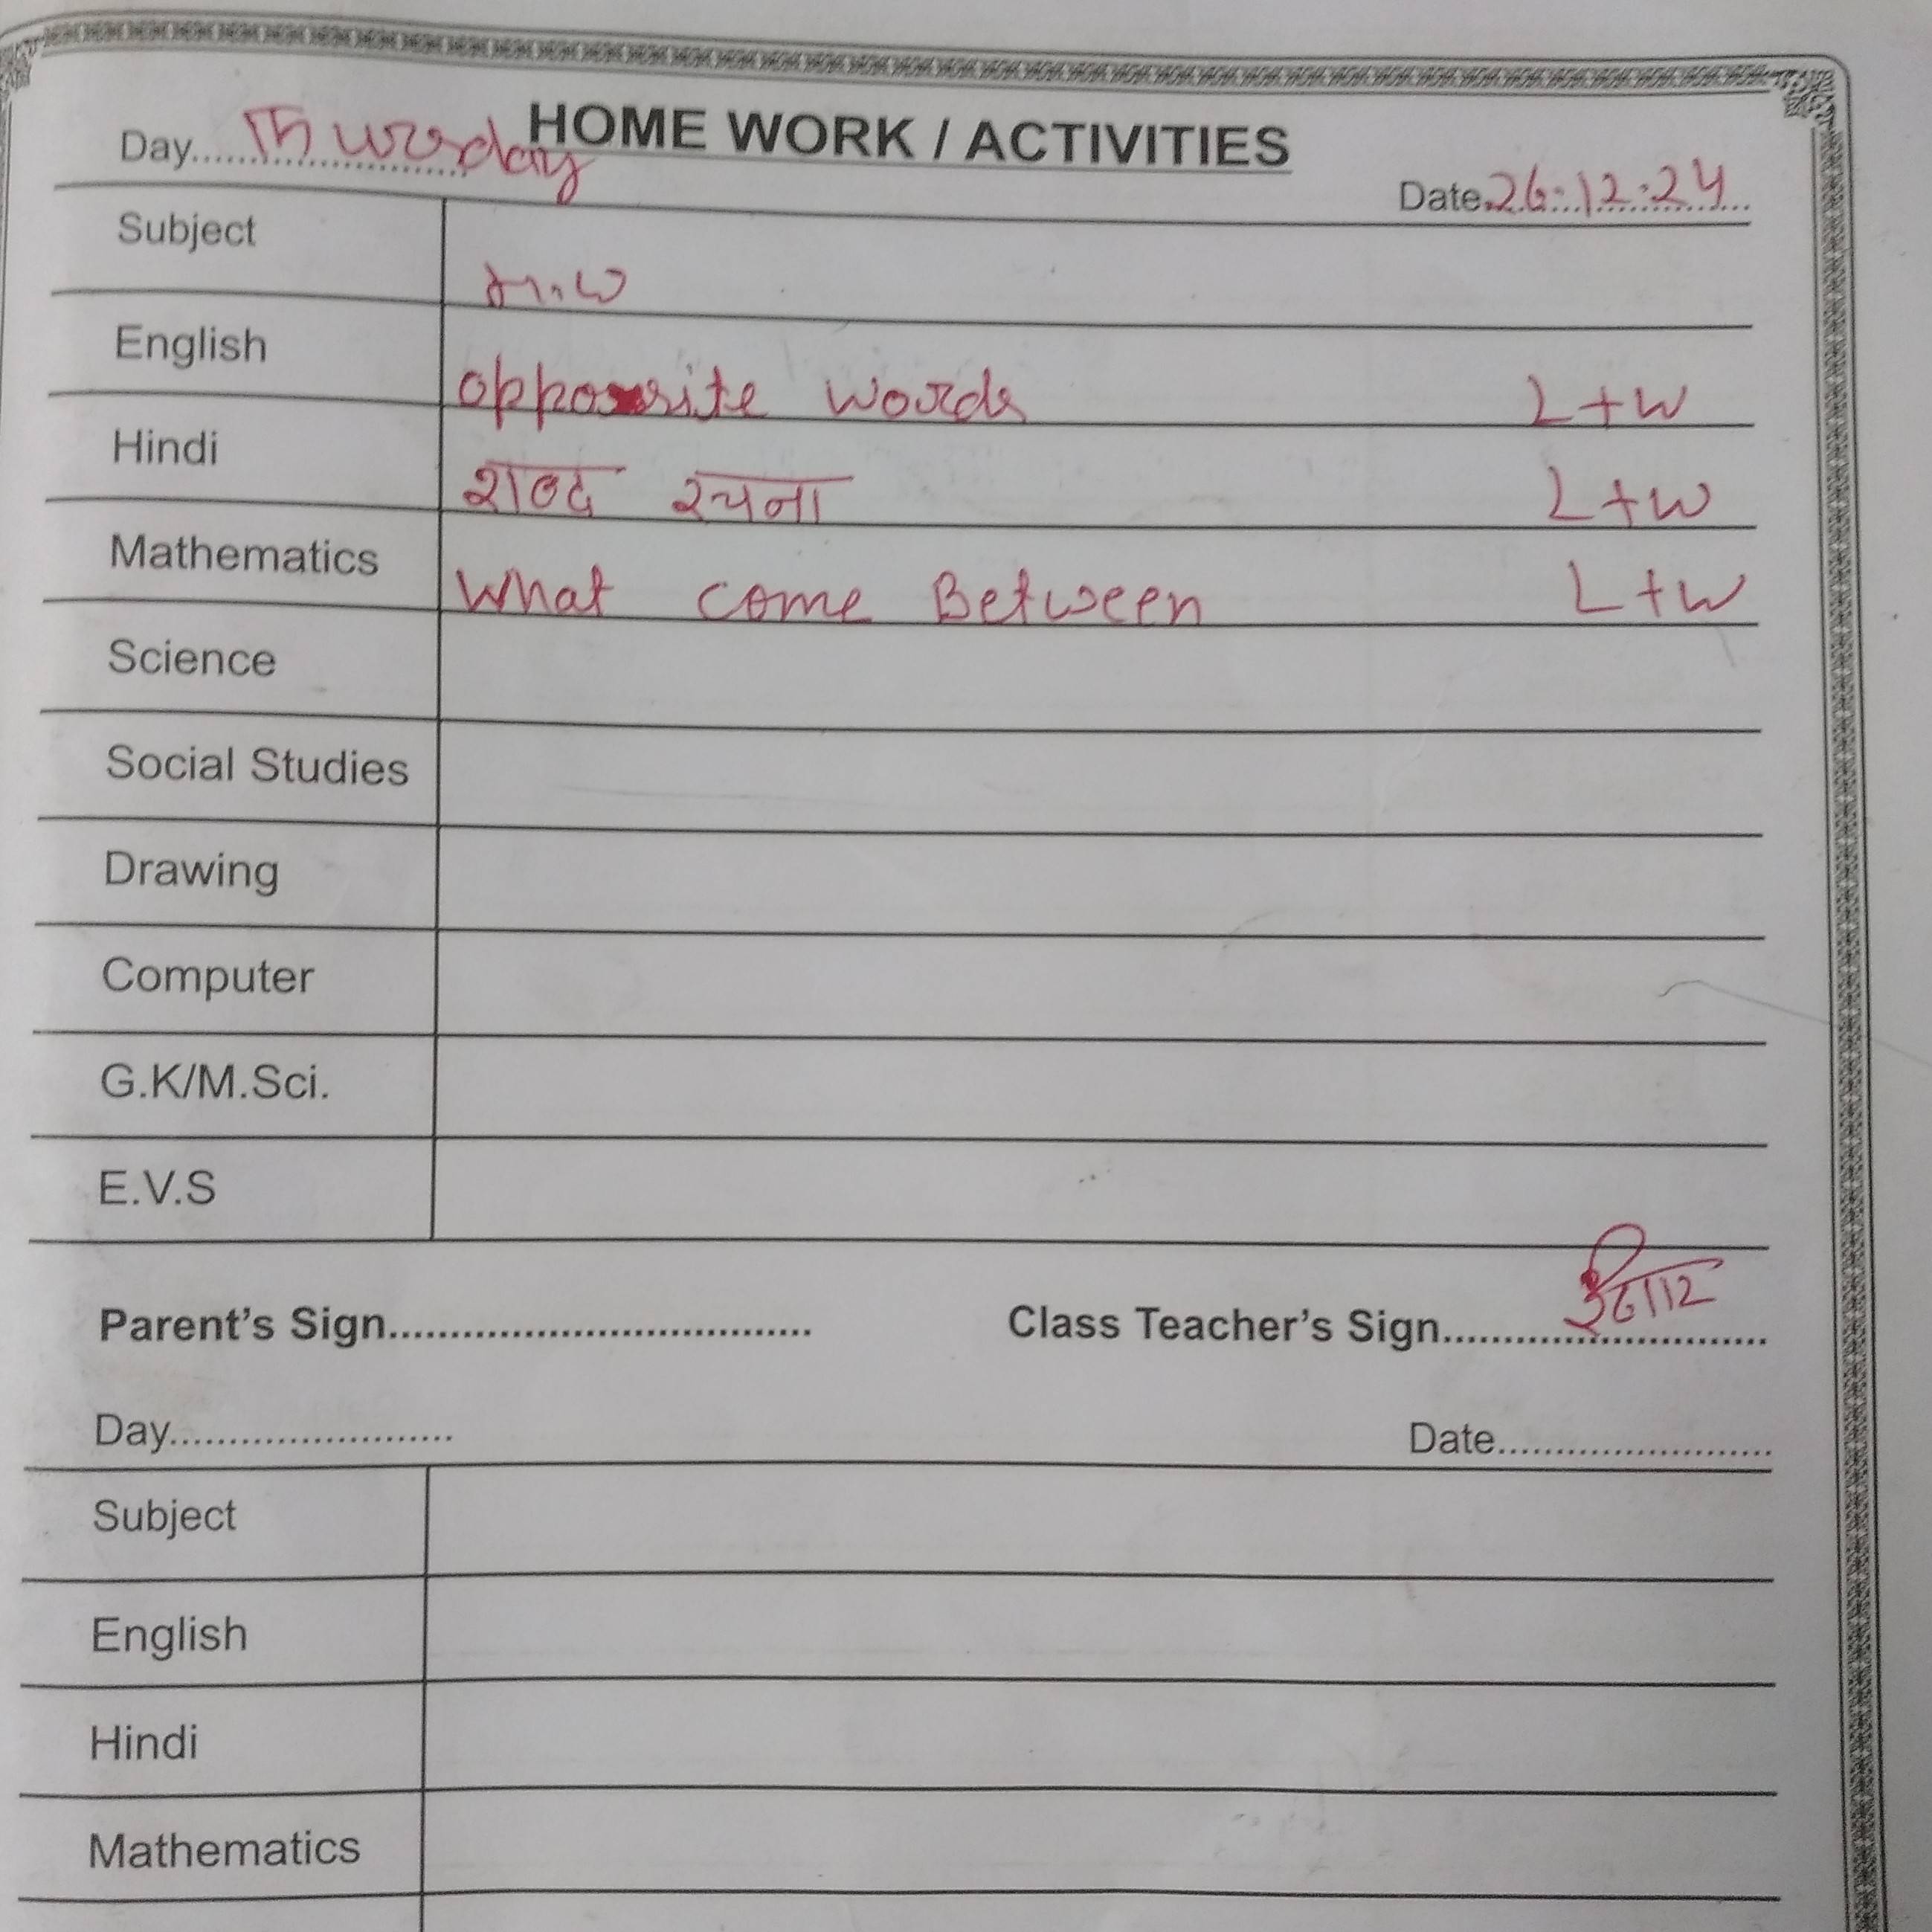 HOME WORK / ACTIVITIES
Day.....Thursday
Date.26:12:24
Subject H.W
English opposite words L+W
Hindi शब्द रचना L+W
Mathematics What come Between L+W
Science
Social Studies
Drawing
Computer
G.K/M.Sci.
E.V.S
Parent's Sign.................................. Class Teacher's Sign..........................
26/12
Day........................ Date........................
Subject
English
Hindi
Mathematics